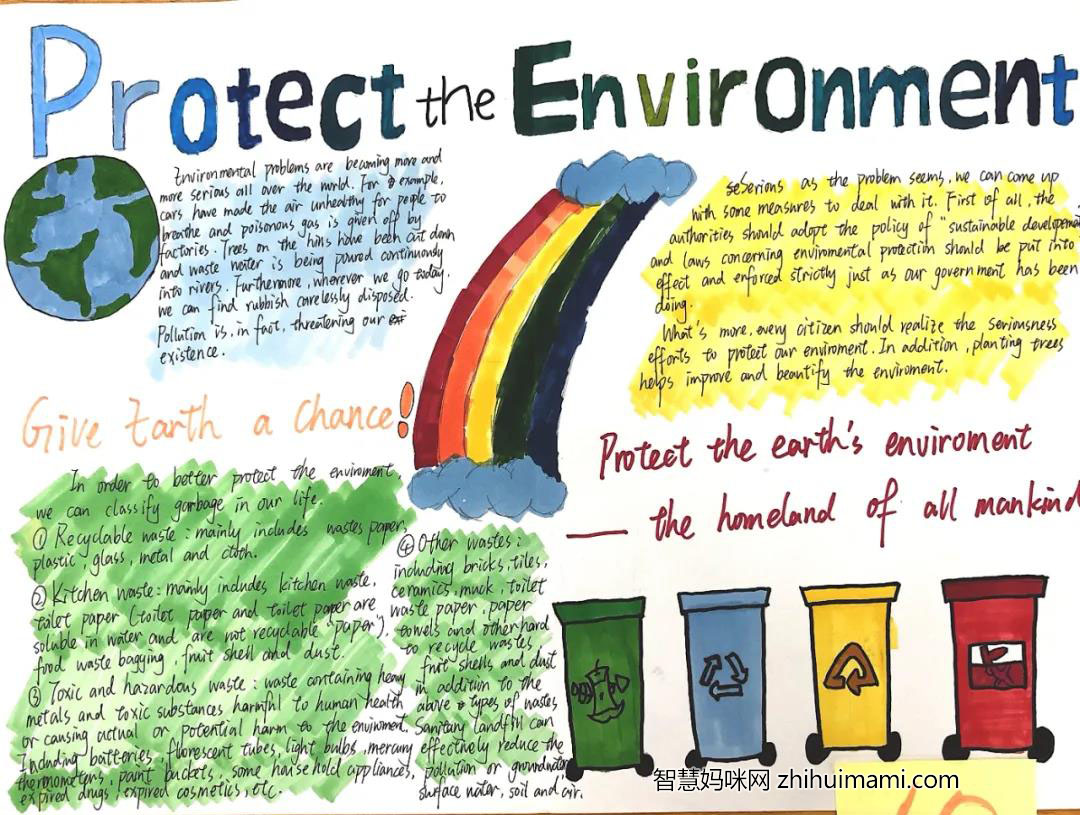 Protect the Environment
Environmental problems are becoming more and
more serious all over the world. For example,
cars have made the air unhealthy for people to
breathe and poisonous gas is given off by
factories. Trees on the hills have been cut down
and waste water is being poured continuously
into rivers. Furthermore, wherever we go today,
we can find rubbish carelessly disposed.
Pollution is, in fact, threatening our
existence.
Serious as the problem seems, we can come up
with some measures to deal with it. First of all, the
authorities should adopt the policy of "sustainable developmen
and laws concerning enviromental protection should be put into
effect and enforced strictly just as our government has been
doing.
What's more, every citizen should realize the seriousness
efforts to protect our enviroment. In addition, planting trees
helps improve and beautify the enviroment.
Give Earth a Chance!
Protect the earth's enviroment
— the homeland of all mankind
In order to better protect the enviroment,
we can classify garbage in our life.
① Recyclable waste: mainly includes wastes paper,
plastic, glass, metal and cloth.
② Kitchen waste: mainly includes kitchen waste,
toilet paper (toilet paper and toilet paper are
soluble in water and are not recyclable "paper"),
food waste bagging, fruit shell and dust.
③ Toxic and hazardous waste: waste containing heavy
metals and toxic substances harmful to human health
or causing actual or potential harm to the enviroment.
Including batteries, fluorescent tubes, light bulbs, mercury
thermometers, paint buckets, some household appliances,
expired drugs, expired cosmetics, etc.
④ Other wastes:
including bricks, tiles,
ceramics, muck, toilet
waste paper, paper
towels and other hard
to recycle wastes,
fruit shells and dust
in addition to the
above types of wastes.
Sanitary landfill can
effectively reduce the
pollution or groundwater,
surface water, soil and air.
智慧妈咪网 zhihuimami.com